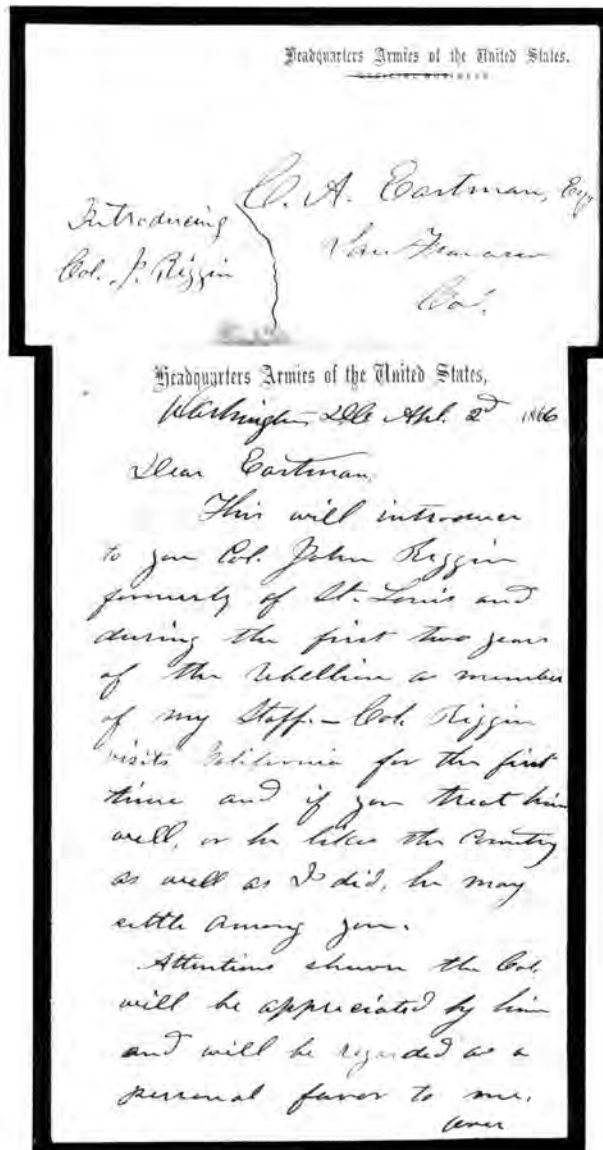 Headquarters Armies of the United States.
OFFICIAL BUSINESS
C. A. Eastman, Esq
San Francisco
Cal.
Introducing
Col. J. Riggin
Headquarters Armies of the United States,
Washington DC Apl. 2d 1866
Dear Eastman,
This will introduce
to you Col. John Riggin
formerly of St. Louis and
during the first two years
of the rebellion a member
of my Staff. – Col. Riggin
visits California for the first
time and if you treat him
well, or he likes the Country
as well as I did, he may
settle among you.
Attentions shown the Col.
will be appreciated by him
and will be regarded as a
personal favor to me.
over